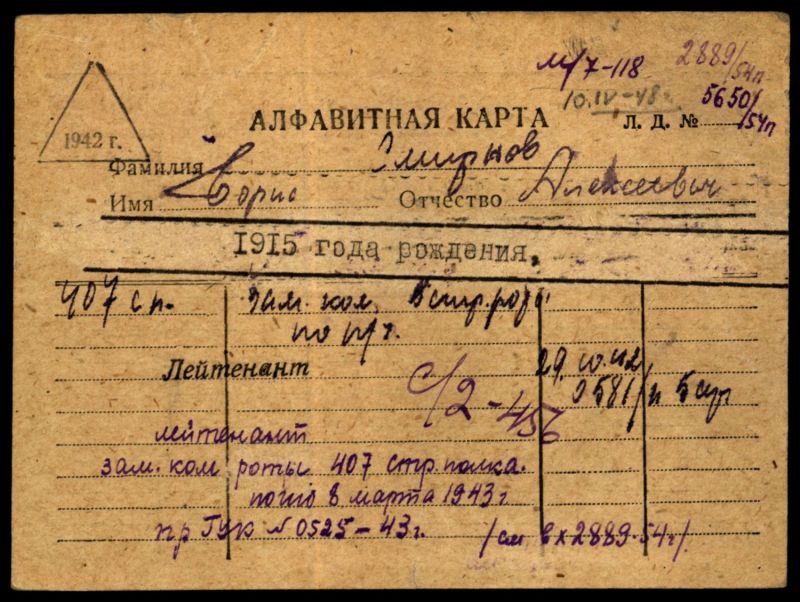 м/7-118 2889/54п
10.IV-48г 5650/54п
АЛФАВИТНАЯ КАРТА Л. Д. №
1942 г.
Фамилия Смирнов
Имя Борис Отчество Алексеевич
1915 года рождения.
407 сп. Зам. ком. стр. роты
по п/ч.
Лейтенант 29.10.42
с/2-456 0581/п 5 стр
лейтенант
зам. ком роты 407 стр. полка.
8 марта 1943 г
пр ГУК № 0525-43г. /см вх 2889-54г/.